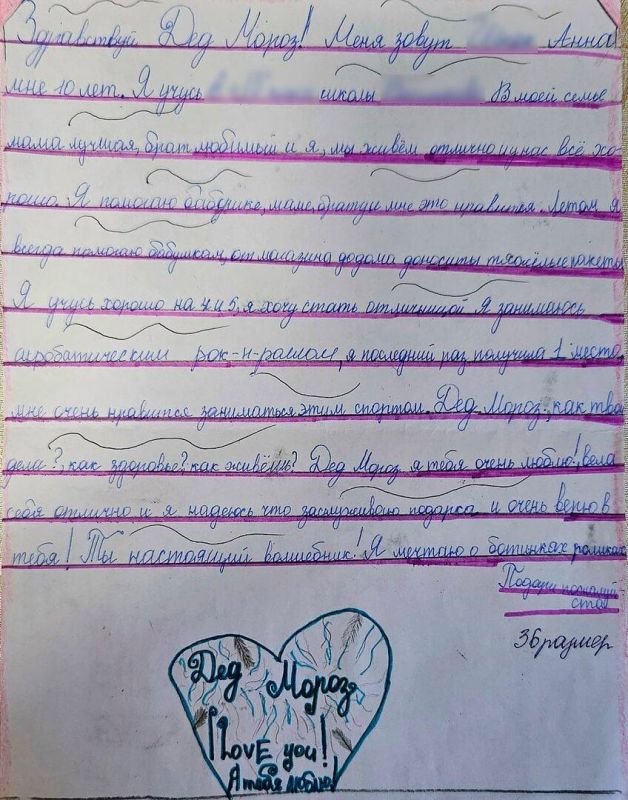 Здравствуй Дед Мороз! Меня зовут Анна!
мне 10 лет. Я учусь школы В моей семье
мама лучшая, брат любимый и я, мы живём отлично и у нас всё хо-
рошо. Я помогаю бабушке, маме, брату и мне это нравится. Летом я
всегда помогаю бабушкам, от магазина до дома доносить тяжёлые пакеты
Я учусь хорошо на 4 и 5, я хочу стать отличницой. Я занимаюсь
акробатическим рок-н-ролом, я последний раз получила 1 место,
мне очень нравится заниматься этим спортом. Дед Мороз, как твои
дела?, как здоровье? как живёшь? Дед Мороз я тебя очень люблю!, вела
себя отлично и я надеюсь что заслуживаю подарка и очень верю в
тебя! Ты настоящий волшебник! Я мечтаю о ботинках роликах
Подари пожалуй-
ста
36 размер
Дед Мороз
I LovE you!
А тебя люблю!